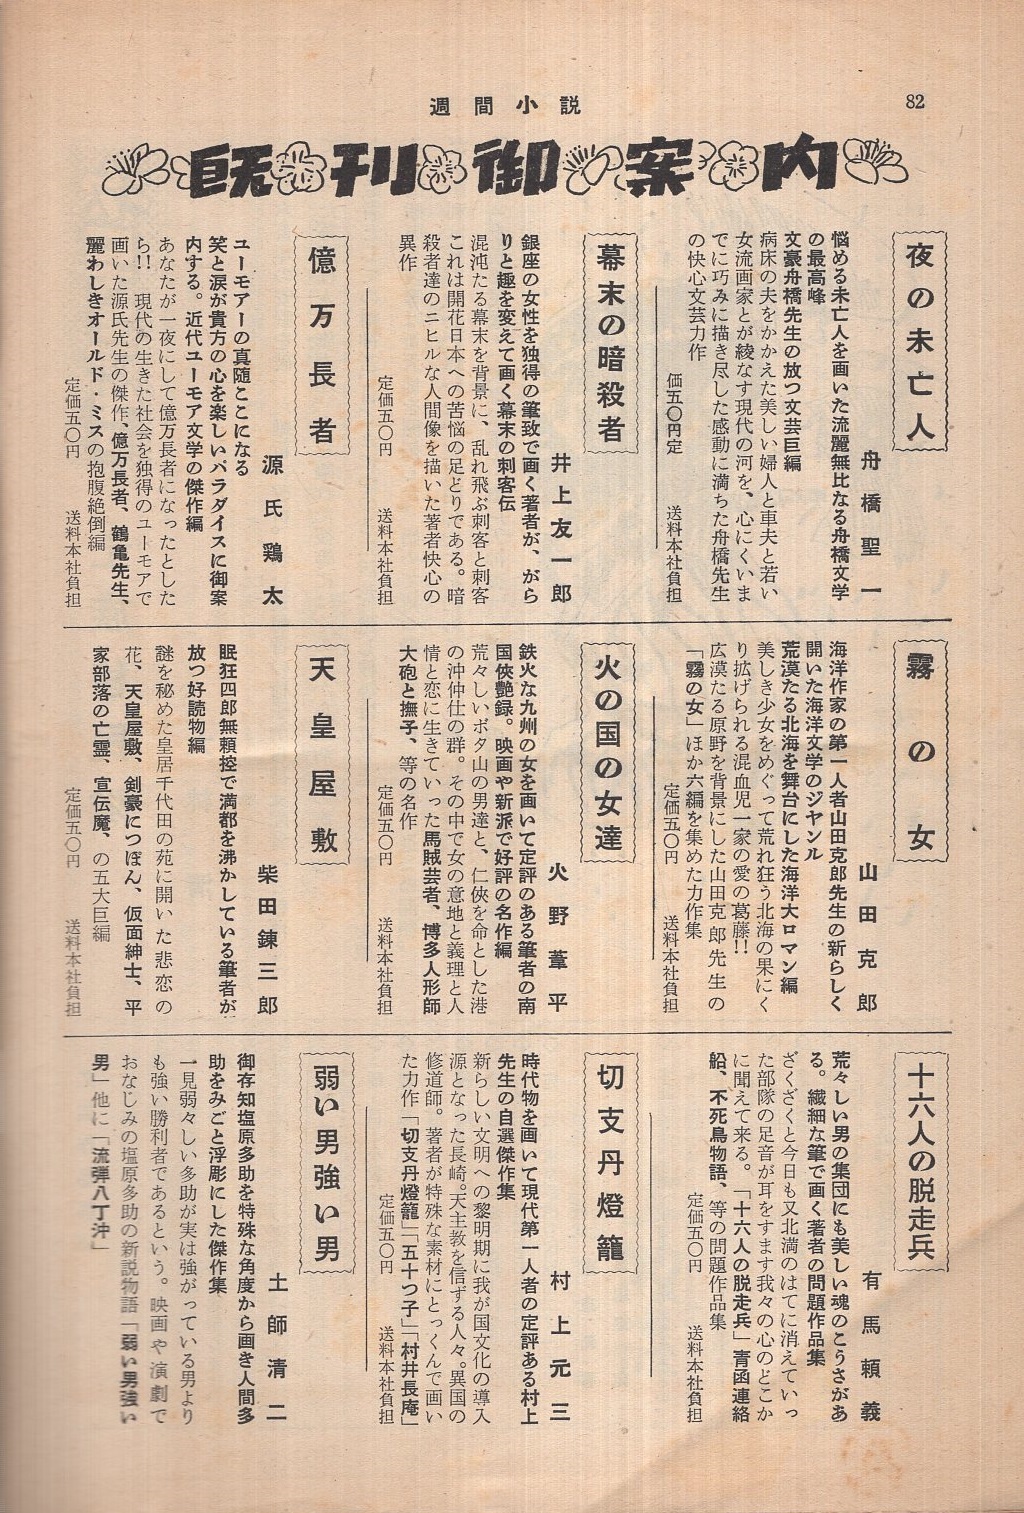 82
週間小説
既刊御案内
夜の未亡人
舟橋聖一
悩める未亡人を画いた流麗無比なる舟橋文学
の最高峰
文豪舟橋先生の放つ文芸巨編
病床の夫をかかえた美しい婦人と車夫と若い
女流画家とが綾なす現代の河を、心にくいま
でに巧みに描き尽した感動に満ちた舟橋先生
の快心文芸力作
価五〇円定　送料本社負担
幕末の暗殺者
井上友一郎
銀座の女性を独得の筆致で画く著者が、がら
りと趣を変えて画く幕末の刺客伝
混沌たる幕末を背景に、乱れ飛ぶ刺客と刺客
これは開花日本への苦悩の足どりである。暗
殺者達のニヒルな人間像を描いた著者快心の
異作
定価五〇円　送料本社負担
億万長者
源氏鶏太
ユーモアーの真随ここになる
笑と涙が貴方の心を楽しいパラダイスに御案
内する。近代ユーモア文学の傑作編
あなたが一夜にして億万長者になったとした
ら!!　現代の生きた社会を独得のユーモアで
画いた源氏先生の傑作、億万長者、鶴亀先生、
麗わしきオールド・ミスの抱腹絶倒編
定価五〇円　送料本社負担
霧の女
山田克郎
海洋作家の第一人者山田克郎先生の新らしく
開いた海洋文学のジヤンル
荒漠たる北海を舞台にした海洋大ロマン編
美しき少女をめぐって荒れ狂う北海の果にく
り拡げられる混血児一家の愛の葛藤!!
広漠たる原野を背景にした山田克郎先生の
「霧の女」ほか六編を集めた力作集
定価五〇円　送料本社負担
火の国の女達
火野葦平
鉄火な九州の女を画いて定評のある筆者の南
国侠艶録。映画や新派で好評の名作編
荒々しいボタ山の男達と、仁侠を命とした港
の沖仲仕の群。その中で女の意地と義理と人
情と恋に生きていった馬賊芸者、博多人形師
大砲と撫子、等の名作
定価五〇円　送料本社負担
天皇屋敷
柴田錬三郎
眠狂四郎無頼控で満都を沸かしている筆者が
放つ好読物編
謎を秘めた皇居千代田の苑に開いた悲恋の
花、天皇屋敷、剣豪につぽん、仮面紳士、平
家部落の亡霊、宣伝魔、の五大巨編
定価五〇円　送料本社負担
十六人の脱走兵
有馬頼義
荒々しい男の集団にも美しい魂のこうさがあ
る。繊細な筆で画く著者の問題作品集
ざくざくと今日も又北満のはてに消えていっ
た部隊の足音が耳をすます我々の心のどこか
に聞えて来る。「十六人の脱走兵」青函連絡
船、不死鳥物語、等の問題作品集
定価五〇円　送料本社負担
切支丹燈籠
村上元三
時代物を画いて現代第一人者の定評ある村上
先生の自選傑作集
新らしい文明への黎明期に我が国文化の導入
源となった長崎。天主教を信ずる人々。異国の
修道師。著者が特殊な素材にとっくんで画い
た力作「切支丹燈籠」「五十つ子」「村井長庵」
定価五〇円　送料本社負担
弱い男強い男
土師清二
御存知塩原多助を特殊な角度から画き人間多
助をみごと浮彫にした傑作集
一見弱々しい多助が実は強がっている男より
も強い勝利者であるという。映画や演劇で
おなじみの塩原多助の新説物語「弱い男強い
男」他に「流弾八丁沖」